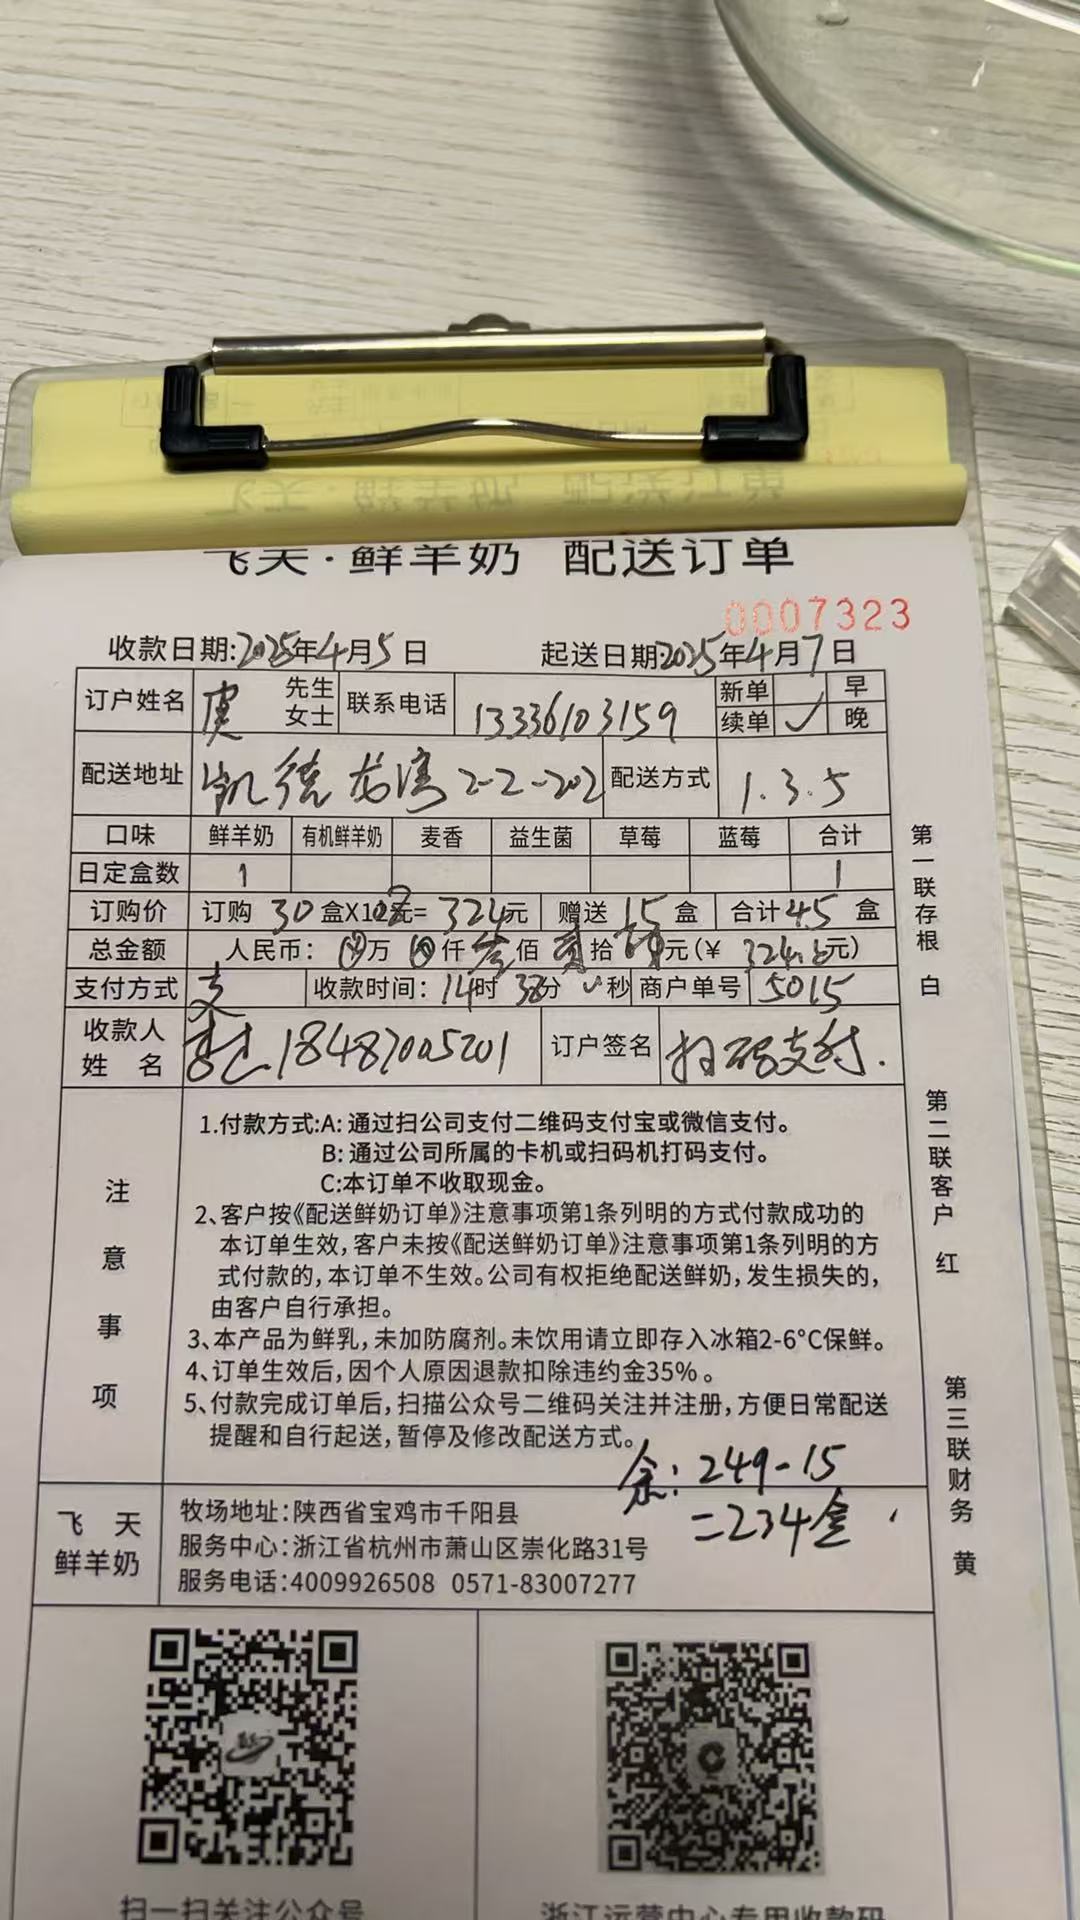 飞天·鲜羊奶 配送订单
0007323
收款日期:2025年4月5日 起送日期2025年4月7日
订户姓名 虞 先生 女士 联系电话 13336103159 新单 续单 ✓ 早 晚
配送地址 凯德龙湾2-2-202 配送方式 1.3.5
口味 鲜羊奶 有机鲜羊奶 麦香 益生菌 草莓 蓝莓 合计
日定盒数 1 1
订购价 订购 30 盒X10.8元= 324元 赠送 15 盒 合计45 盒
总金额 人民币: 万 仟 叁佰 贰拾 肆元(¥ 324.元)
支付方式 支 收款时间:14时 38分 秒 商户单号 5015
收款人姓名 18487005201 订户签名 扫码支付.
注意事项
1.付款方式:A:通过扫公司支付二维码支付宝或微信支付。
B:通过公司所属的卡机或扫码机打码支付。
C:本订单不收取现金。
2、客户按《配送鲜奶订单》注意事项第1条列明的方式付款成功的
本订单生效,客户未按《配送鲜奶订单》注意事项第1条列明的方
式付款的,本订单不生效。公司有权拒绝配送鲜奶,发生损失的,
由客户自行承担。
3、本产品为鲜乳,未加防腐剂。未饮用请立即存入冰箱2-6°C保鲜。
4、订单生效后,因个人原因退款扣除违约金35%。
5、付款完成订单后,扫描公众号二维码关注并注册,方便日常配送
提醒和自行起送,暂停及修改配送方式。
余:249-15
=234盒
飞天鲜羊奶
牧场地址:陕西省宝鸡市千阳县
服务中心:浙江省杭州市萧山区崇化路31号
服务电话:4009926508 0571-83007277
扫一扫关注公众号 浙江运营中心专用收款码
第一联存根 白
第二联客户 红
第三联财务 黄